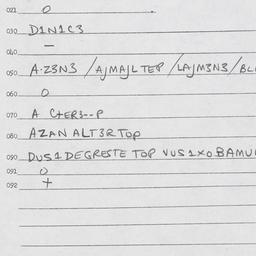 021 O
030 D1N1C3
040 —
050 A·Z3N3 /AJMAJL TEP /LAJM3N3/BL
060 O
070 A C+ER3--P
080 AZAN ALT3R TOP
090 DUS1DEGRESTE TOP VUS1XOBAMU
091 O
092 +